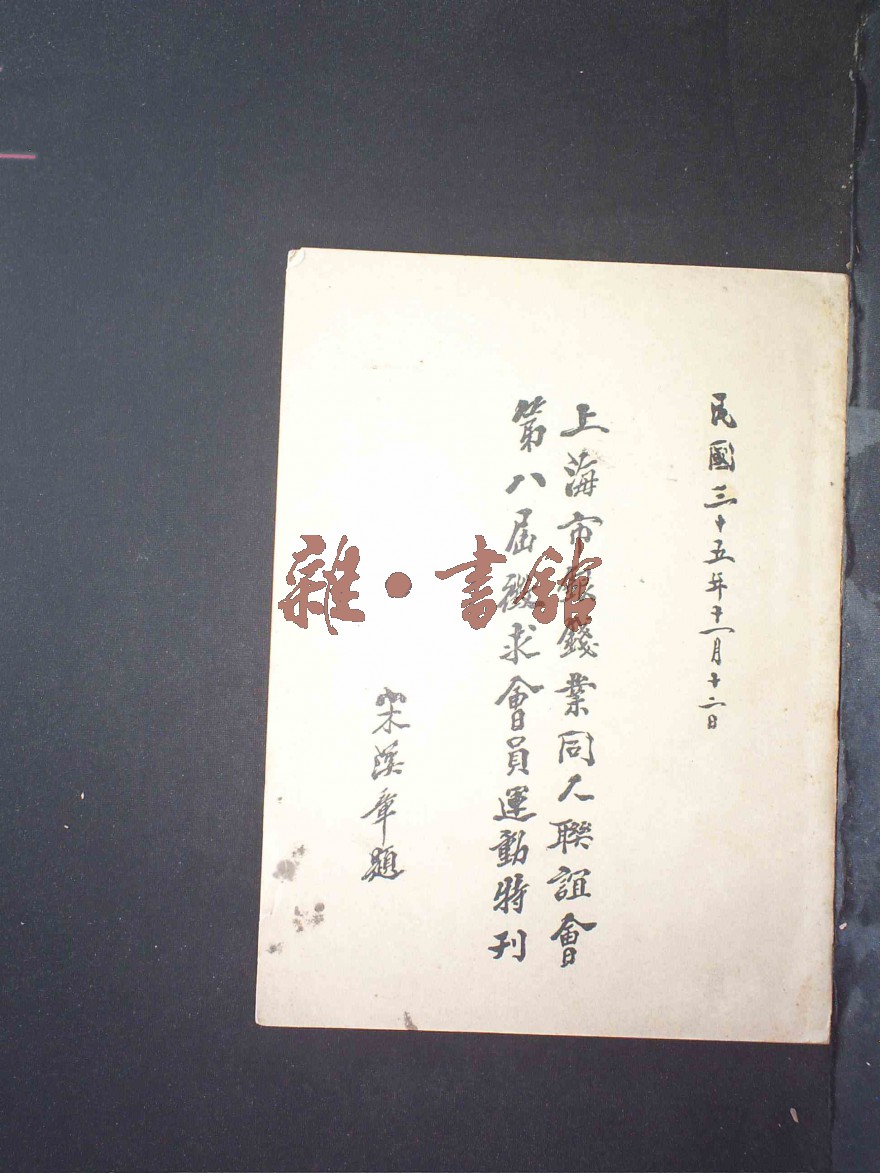 民國三十五年十一月十二日
上海市銀錢業同人聯誼會
第八屆徵求會員運動特刊
宋漢章題
雜·書館